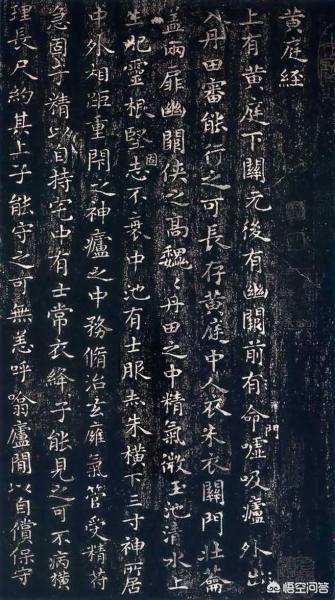 黃庭経
上有黃庭下關元後有幽闕前有命門噓吸廬外出
入丹田審能行之可長存黃庭中人衣朱衣關門壯籥
蓋兩扉幽闕俠之高魏〻丹田之中精氣微玉池清水上
生肥靈根堅固志不衰中池有士服赤朱橫下三寸神所居
中外相距重閉之神廬之中務脩治玄廱氣管受精符
急固子精以自持宅中有士常衣絳子能見之可不病橫
理長尺約其上子能守之可無恙呼噏廬間以自償保守
悟空问答